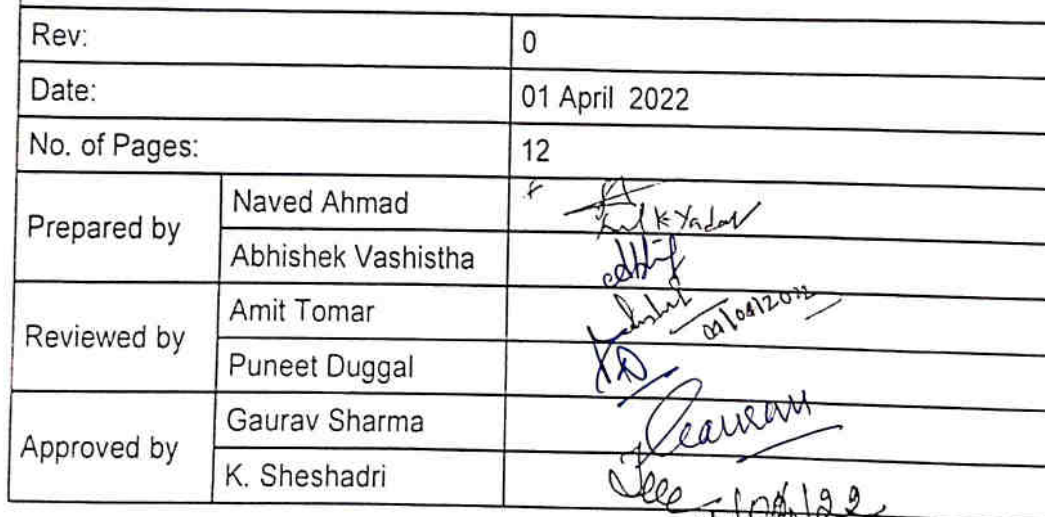 Rev: 0
Date: 01 April 2022
No. of Pages: 12
Prepared by
Naved Ahmad
K Yadav
Abhishek Vashistha
Reviewed by
Amit Tomar
Puneet Duggal
Approved by
Gaurav Sharma
Gaurav
K. Sheshadri